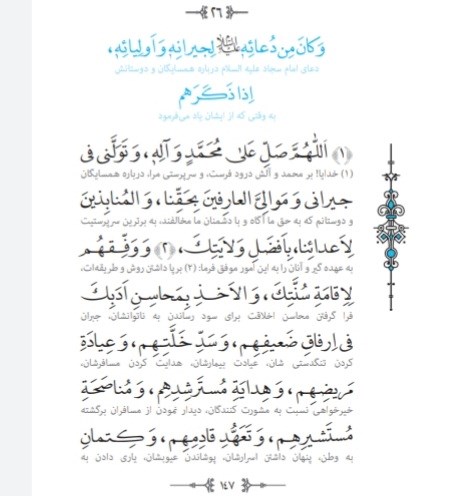 ۲۶
وَكانَ مِن دُعائِهِ عَلَيْهِ‌السَّلامُ لِجيرانِهِ وَ أَولِيائِهِ،
دعای امام سجاد علیه السلام درباره همسایگان و دوستانش
إِذا ذَكَرَهُم
به وقتی که از ایشان یاد می‌فرمود
﴿۱﴾ اَللّٰهُمَّ صَلِّ عَلىٰ مُحَمَّدٍ وَ آلِهِ، وَ تَوَلَّنى فى
(۱) خدایا! بر محمد و آلش درود فرست، و سرپرستی مرا، درباره همسایگان
جيرانى وَ مَوالِىَّ العارِفينَ بِحَقِّنا، وَ المُنابِذينَ
و دوستانم که به حق ما آگاه و با دشمنان ما مخالفند، به برترین سرپرستیت
لِأَعدائِنا، بِأَفضَلِ وَلايَتِكَ، ﴿۲﴾ وَ وَفِّقهُم
به عهده گیر و آنان را به این امور موفق فرما: (۲) برپا داشتن روش و طریقه‌ات،
لِإِقامَةِ سُنَّتِكَ، وَ الأَخذِ بِمَحاسِنِ أَدَبِكَ
فرا گرفتن محاسن اخلاقت برای سود رساندن به ناتوانشان، جبران
فى إِرفاقِ ضَعيفِهِم، وَ سَدِّ خَلَّتِهِم، وَ عِيادَةِ
کردن تنگدستی شان، عیادت بیمارشان، هدایت کردن مسافرشان،
مَريضِهِم، وَ هِدايَةِ مُستَرشِدِهِم، وَ مُناصَحَةِ
خیرخواهی نسبت به مشورت کنندگان، دیدار نمودن از مسافران برگشته
مُستَشيرِهِم، وَ تَعَهُّدِ قادِمِهِم، وَ كِتمانِ
به وطن، پنهان داشتن اسرارشان، پوشاندن عیوبشان، یاری دادن به
۱۴۷